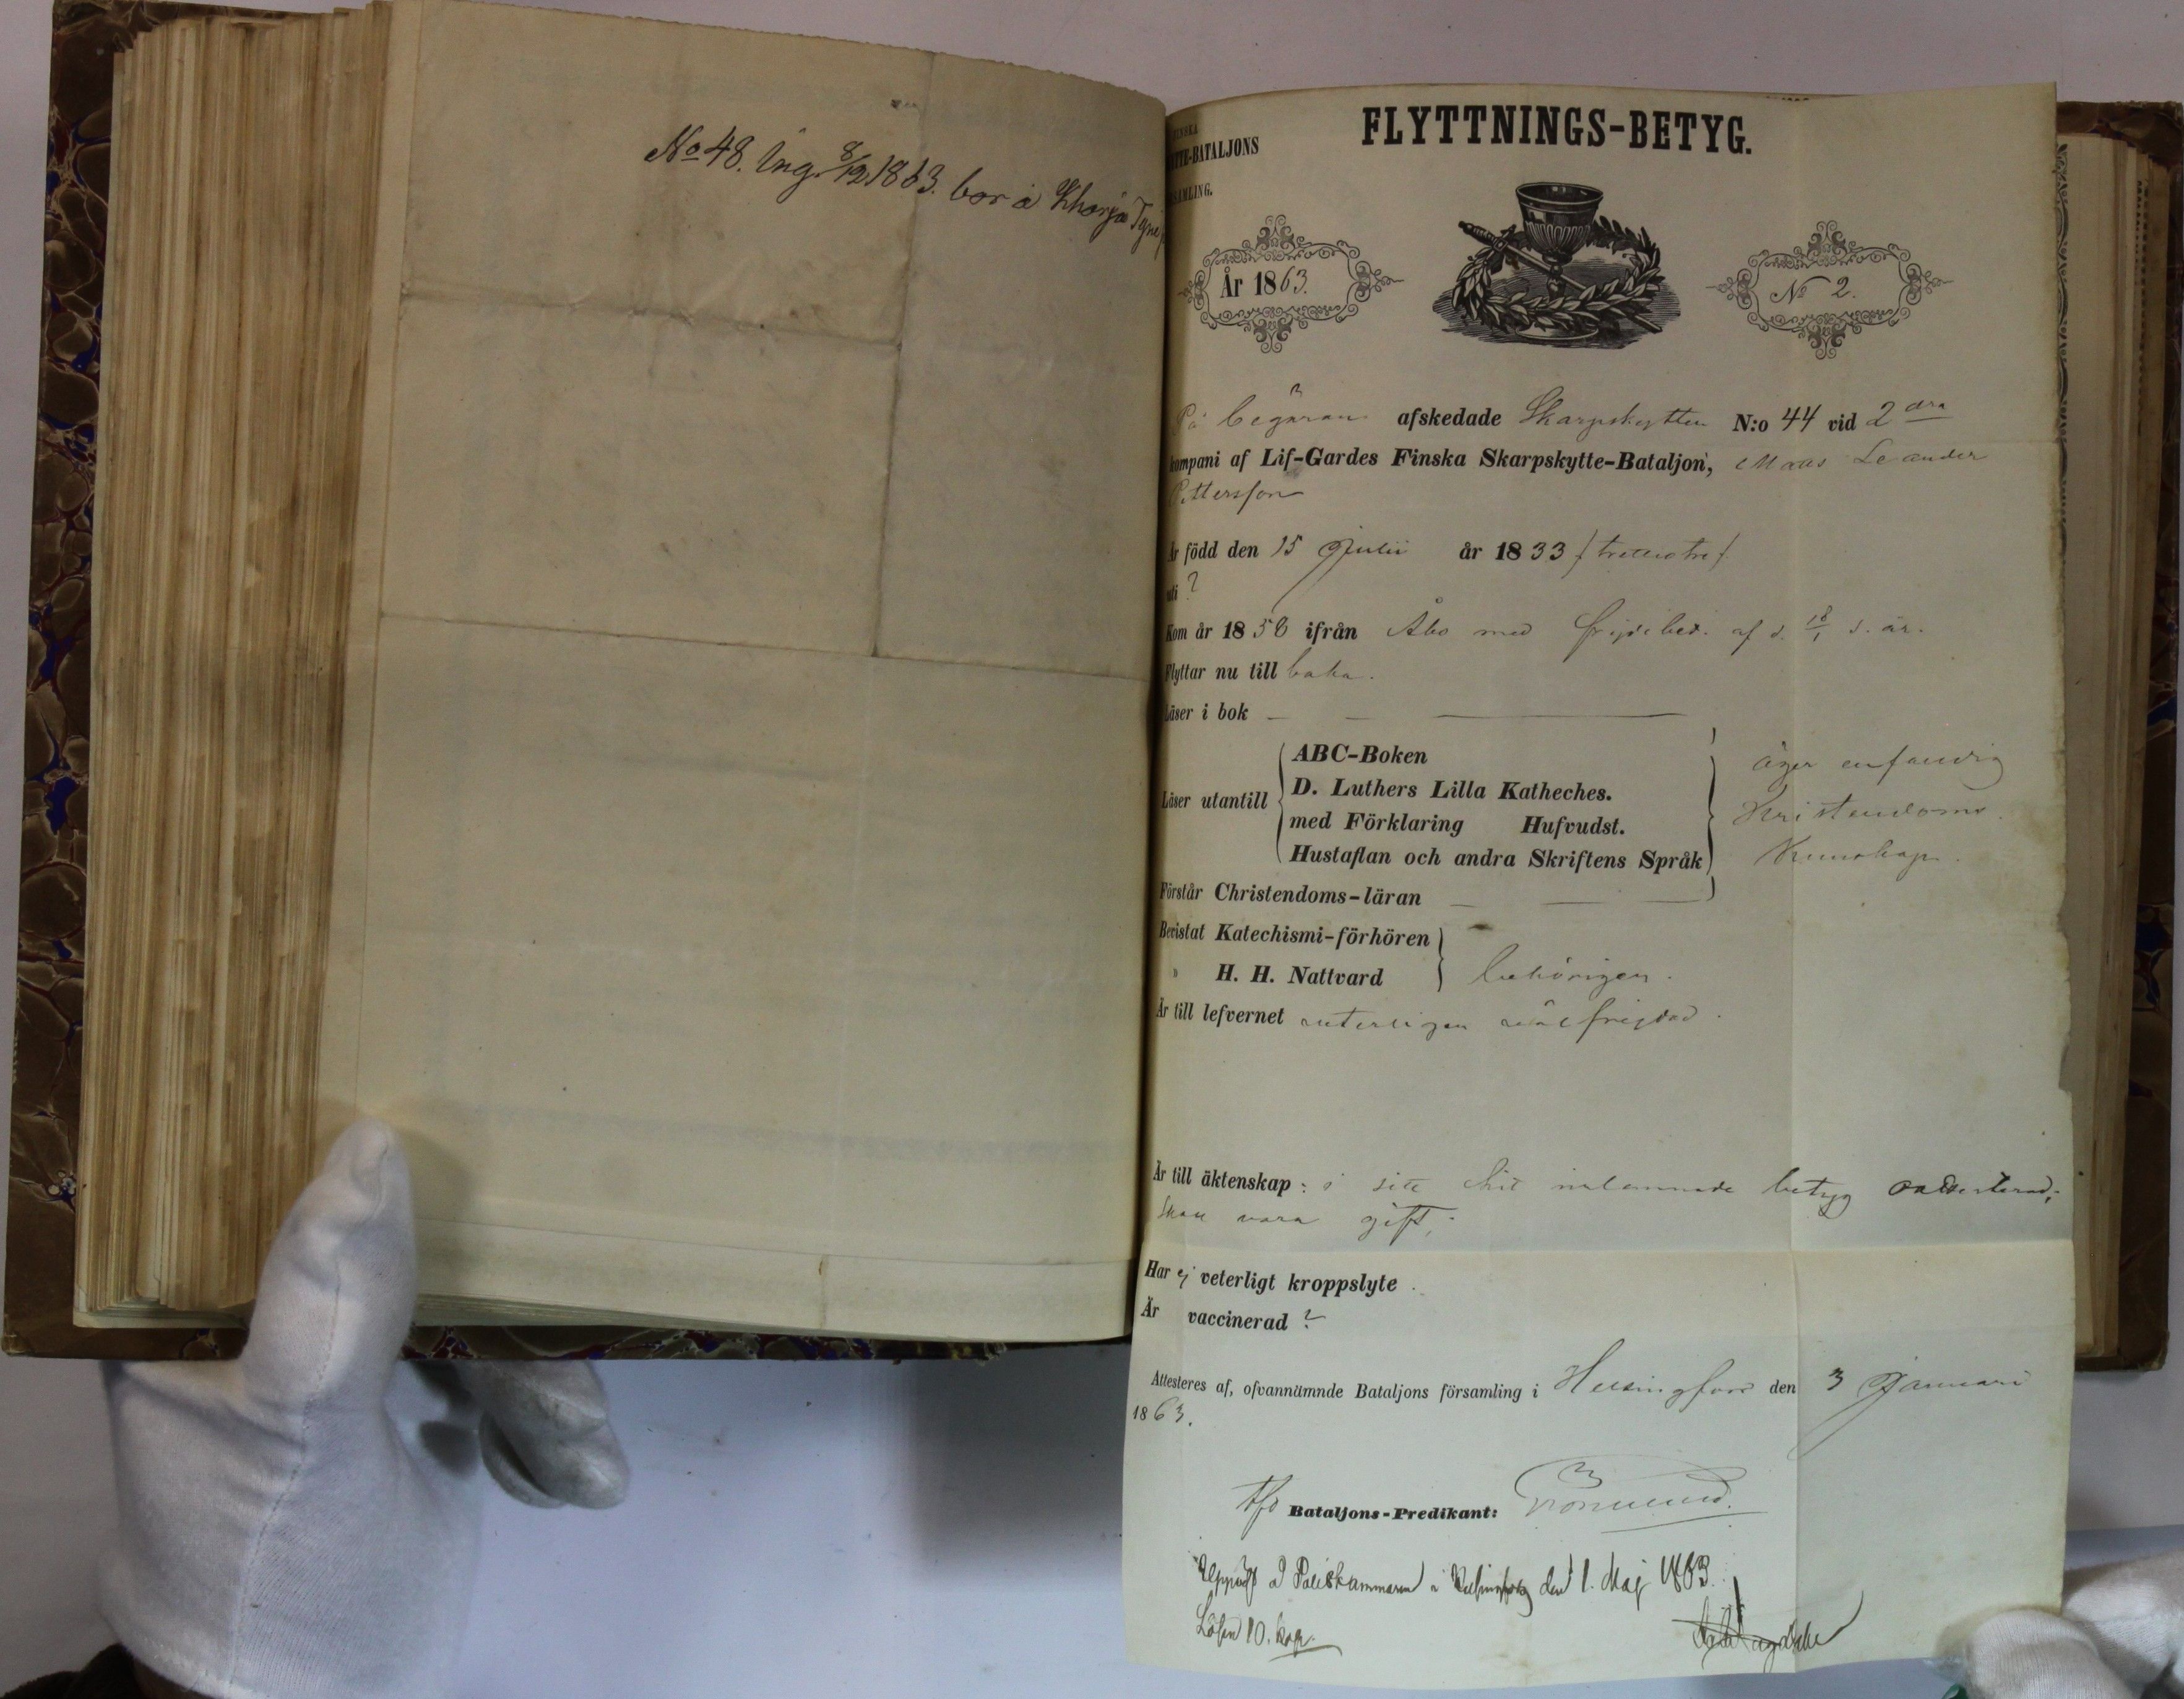 No 48. Ing. 8/12 1863. bor å
FLYTTNINGS-BETYG.
-BATALJONS
År 1863.
No 2.
På begäran afskedade Skarpskytten N:o 44 vid 2 dra
kompani af Lif-Gardes Finska Skarpskytte-Bataljon, Leander
Pettersson
Är född den 15 Julii år 1833 / trettiotre /.
uti ?
Kom år 1858 ifrån Åbo med frejdebet. af d. 18/1 s. år.
Flyttar nu till baka.
Läser i bok — — —
Läser utantill
ABC-Boken
D. Luthers Lilla Katheches.
med Förklaring Hufvudst.
Hustaflan och andra Skriftens Språk
äger enfaldig
Kristendoms
Kunskap.
Förstår Christendoms-läran — — —
Bevistat Katechismi-förhören
" H. H. Nattvard
behörigen.
Är till lefvernet veterligen välfrejdad.
Är till äktenskap: i sitt hit inlemnade betyg
skall vara gift;
Har ej veterligt kroppslyte.
Är vaccinerad ?
Attesteres af, ofvannämnde Bataljons församling i Helsingfors den 3 Januari
1863.
Bataljons-Predikant:
Uppvist å Poliskammaren i Helsingfors den 1. Maj 1863.
Lösen 10. kop.